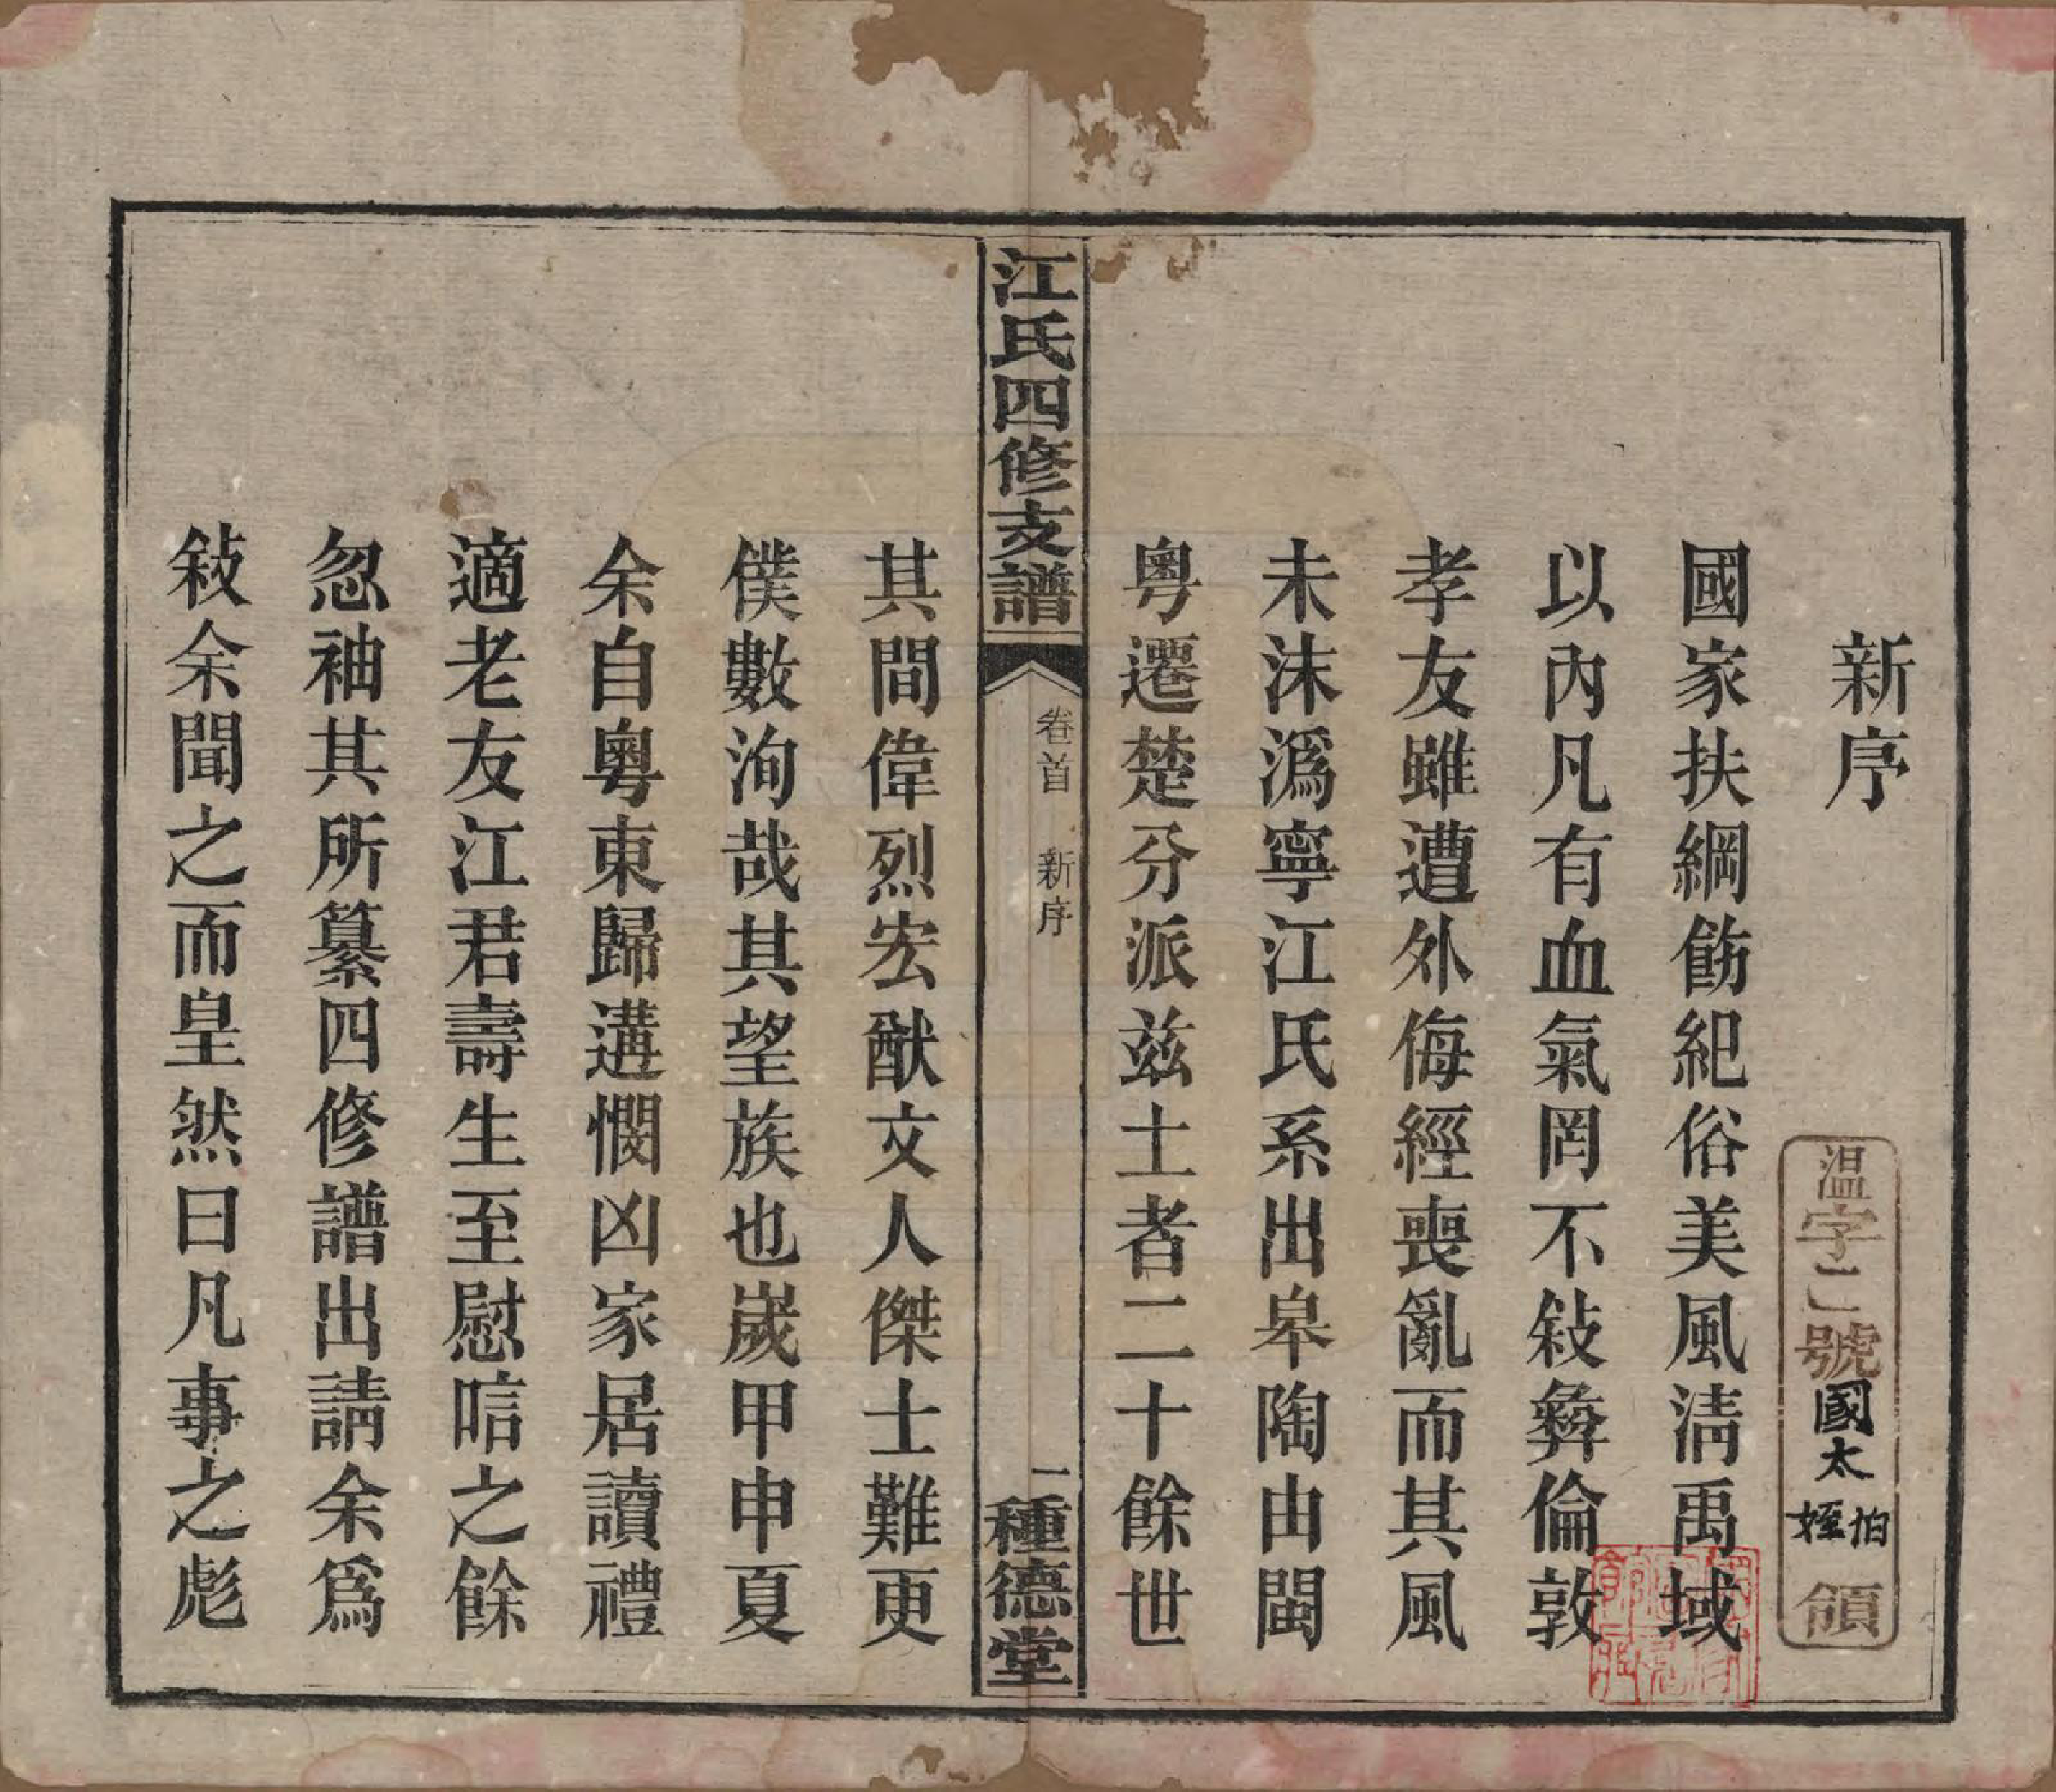 新序
溫字二號國太姪伯領
國家扶綱飭紀俗美風淸禹域
以內凡有血氣罔不敍彝倫敦
孝友雖遭外侮經喪亂而其風
未沫溈寧江氏系出皋陶由閩
粵遷楚分派茲土者二十餘世
江氏四修支譜
卷首 新序
一
種德堂
其間偉烈宏猷文人傑士難更
僕數洵哉其望族也嵗甲申夏
余自粵東歸遘憫凶家居讀禮
適老友江君壽生至慰唁之餘
忽袖其所纂四修譜出請余爲
敍余聞之而皇然曰凡事之彪